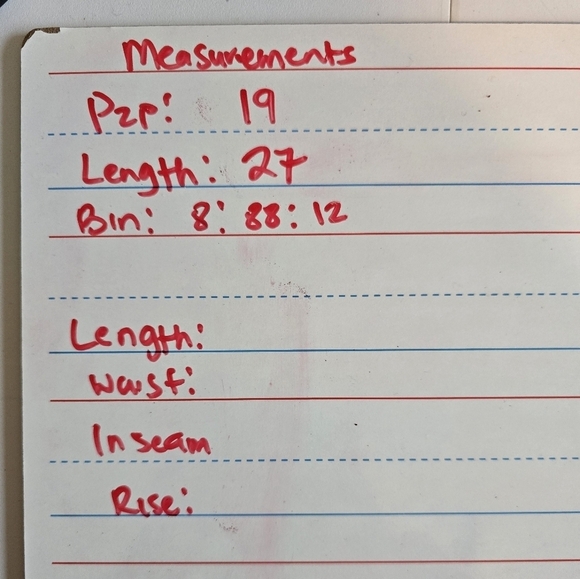 Measurements
P2P: 19
Length: 27
Bin: 8: 88: 12
Length:
Waist:
Inseam
Rise: